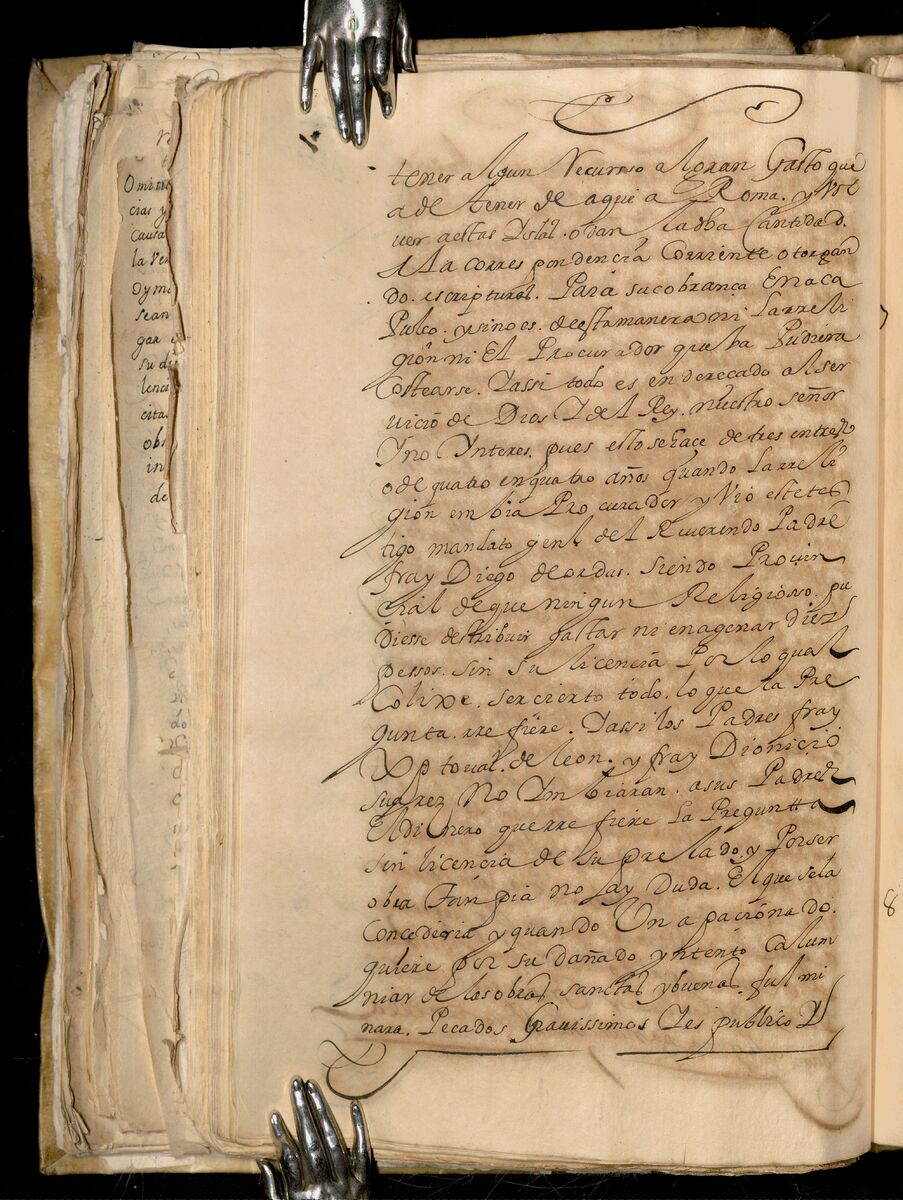 O mi
cias y
causa
la ver
Oy m
sean
gar
su di
lenc
cita
obr
in
de
tener algun Recursso aloran Gasto que
a de tener de aqui a Roma. y Vol
uer aestas Yslas. o dan la dha Cantidad.
A la correspondencia Corriente otorgan
do. escripturas. Para su cobrança En aca
Pulco. y sino es. de esta manera ni La rreli
gion ni El Procurador que ba Pudiera
Costearse. Yassi todo es en derecado al ser
uicio de Dios Y del Rey. nuestro señor
Y no Ynteres. pues esto se hace de tres en tres
o de quatro en quatro años quando La rreli
gion embia Procurador y Vio este tes
tigo mandato genl del Reuerendo Padre
fray Diego de ordas. siendo Prouin
cial de que ningun Religiosso. pu
diesse destribuir gastar ni enagenar diez
pessos. sin su licencia Por lo qual
Colixe. ser cierto todo. lo que la Pre
gunta. rre fiere. Yassi los Padres fray
Xptoual. de leon. y fray Dionicio
suarez No Ymbiaran. a sus Padres
El di nero que rre fiere La Pregunta
sin licencia de su prelado, y Por ser
obra Tan pia no ay Duda. El que se la
Concederia y quando Un apacionado.
quiere por su dañado yntento Calum
niar de las obras sanctas y buenas. ful mi
nara. Pecados Grauissimos Y es publico Y
8